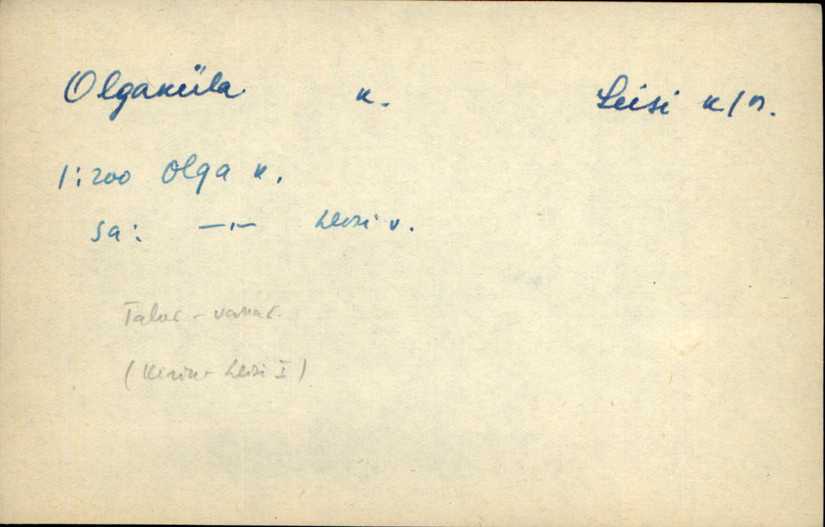 Olgaküla k. Leisi k/n.
1:200 Olga k.
sa: —"— Leisi v.
Talur - vanar.
Leisi I)